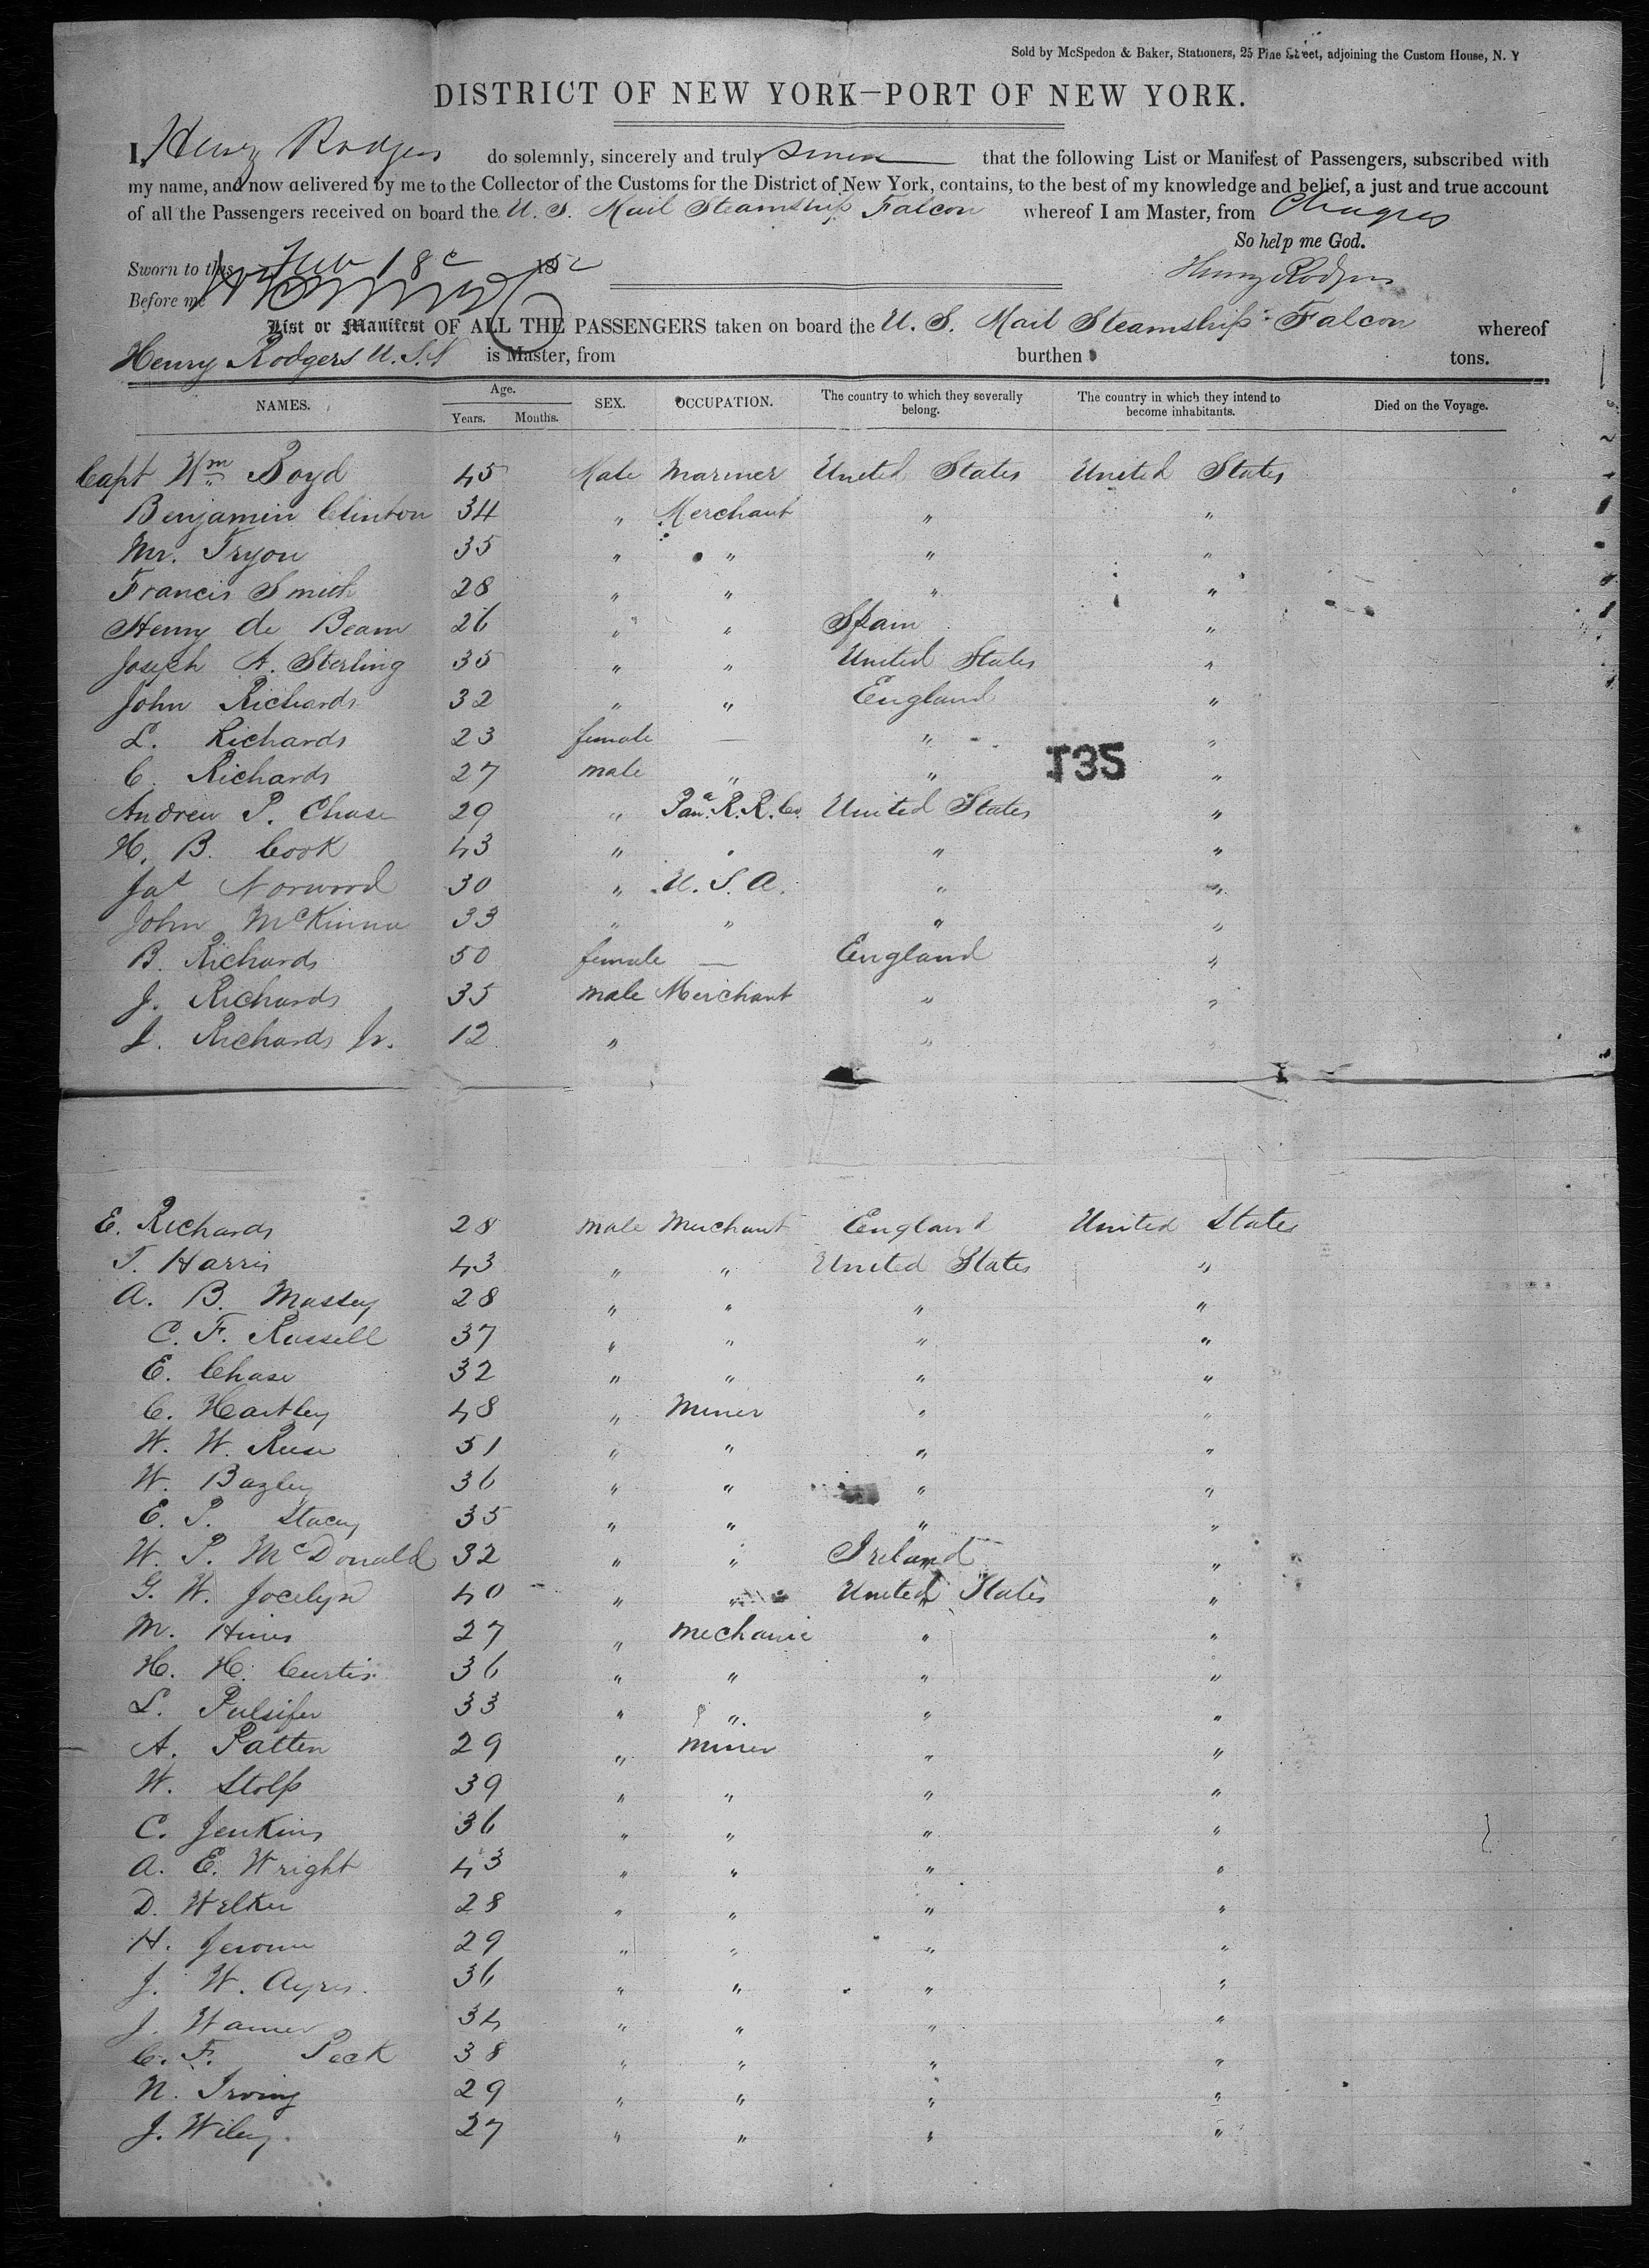 Sold by McSpedon & Baker, Stationers, 25 Pine Street, adjoining the Custom House, N. Y
DISTRICT OF NEW YORK—PORT OF NEW YORK.
I, Henry Rodgers do solemnly, sincerely and truly swear that the following List or Manifest of Passengers, subscribed with
my name, and now delivered by me to the Collector of the Customs for the District of New York, contains, to the best of my knowledge and belief, a just and true account
of all the Passengers received on board the U. S. Mail Steamship Falcon whereof I am Master, from Chagres
So help me God.
Sworn to this Feb 18 1852
Henry Rodgers
Before me
List or Manifest OF ALL THE PASSENGERS taken on board the U. S. Mail Steamship Falcon whereof
Henry Rodgers U.S.N is Master, from burthen tons.
NAMES. Age. Years. Months. SEX. OCCUPATION. The country to which they severally belong. The country in which they intend to become inhabitants. Died on the Voyage.
Capt Wm Boyd 45 Male Mariner United States United States
Benjamin Clinton 34 " Merchant " "
Mr. Tryon 35 " " " "
Francis Smith 28 " " " "
Henry de Beam 26 " " Spain "
Joseph A. Sterling 35 " " United States "
John Richards 32 " " England "
L. Richards 23 female — " "
135
C. Richards 27 male " " "
Andrew P. Chase 29 " Pana. R. R. Co. United States "
H. B. Cook 43 " " " "
Jas Norwood 30 " U. S. A. " "
John McKinna 33 " " " "
B. Richards 50 female — England "
J. Richards 35 male Merchant " "
J. Richards Jr. 12 " " "
E. Richards 28 male Merchant England United States
T. Harris 43 " " United States "
A. B. Massey 28 " " " "
C. F. Russell 37 " " " "
E. Chase 32 " " " "
C. Hartley 48 " Miner " "
W. W. Ruse 51 " " " "
W. Bazley 36 " " " "
E. P. Stacey 35 " " " "
W. P. McDonald 32 " " Ireland "
G. W. Jocelyn 40 " " United States "
M. Hines 27 " Mechanic " "
H. H. Curtis 36 " " " "
L. Pulsifer 33 " " " "
A. Patten 29 " Miner " "
W. Stolp 39 " " " "
C. Jenkins 36 " " " "
A. E. Wright 43 " " " "
D. Welker 28 " " " "
H. Jerome 29 " " " "
J. W. Ayres 36 " " " "
J. Warner 34 " " " "
C. F. Peck 38 " " " "
N. Irving 29 " " " "
J. Wiley 27 " " " "